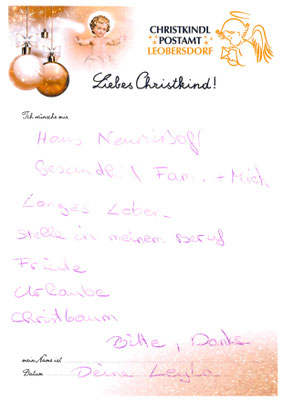 CHRISTKINDL
POSTAMT
LEOBERSDORF
Liebes Christkind!
Ich wünsche mir
Haus
Fam. + Mich
Langes Leben
Stelle in meinem Beruf
Urlaube
Christbaum
Bitte, Danke
mein Name ist
Datum
Deine Leyla